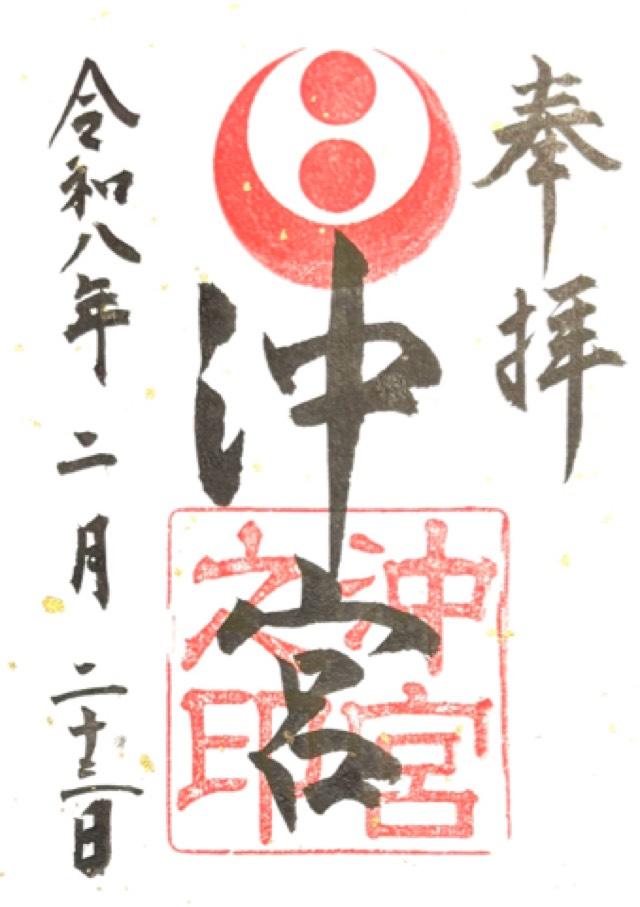 奉拝
沖宮
沖宮之印
令和八年二月二十三日